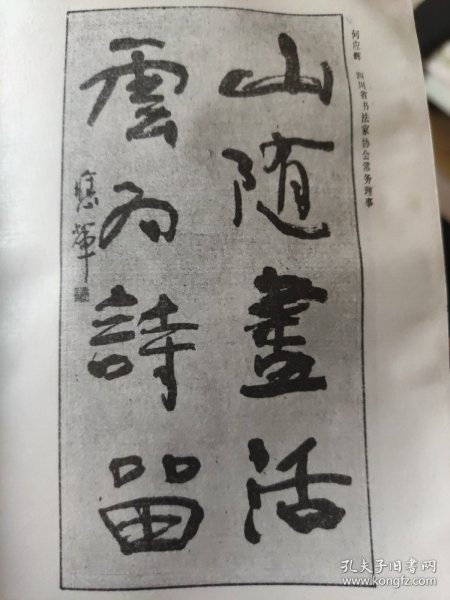 何应辉 四川省书法家协会常务理事
山随畫活
雲为詩留
應輝
孔夫子旧书网
www.kongfz.com